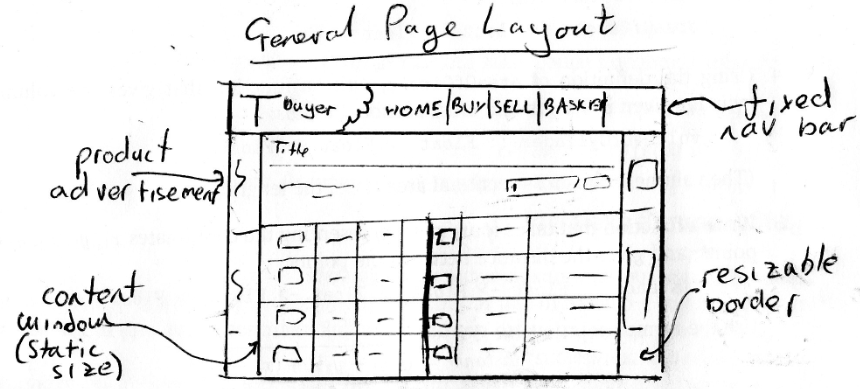 General Page Layout
Buyer HOME|BUY|SELL|BASKET
fixed
nav bar
Title
product
advertisement
content
window
(static
size)
resizable
border